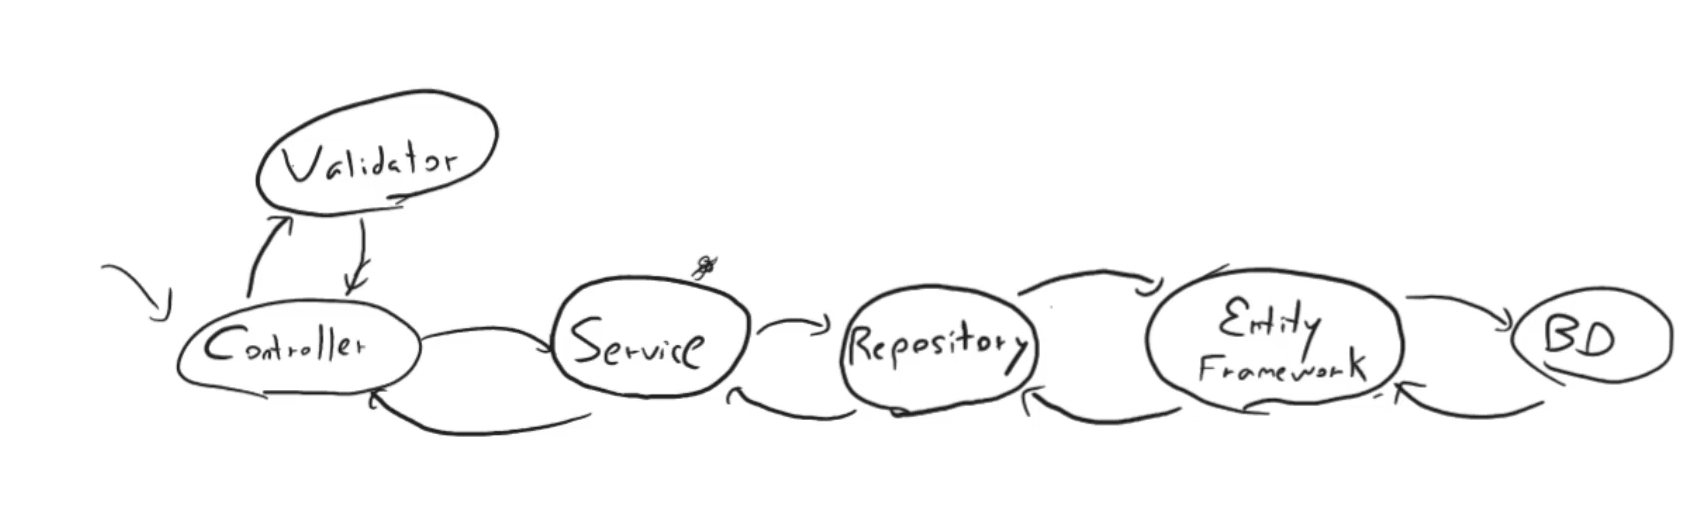 Validator
Controller
Service
Repository
Entity
Framework
BD